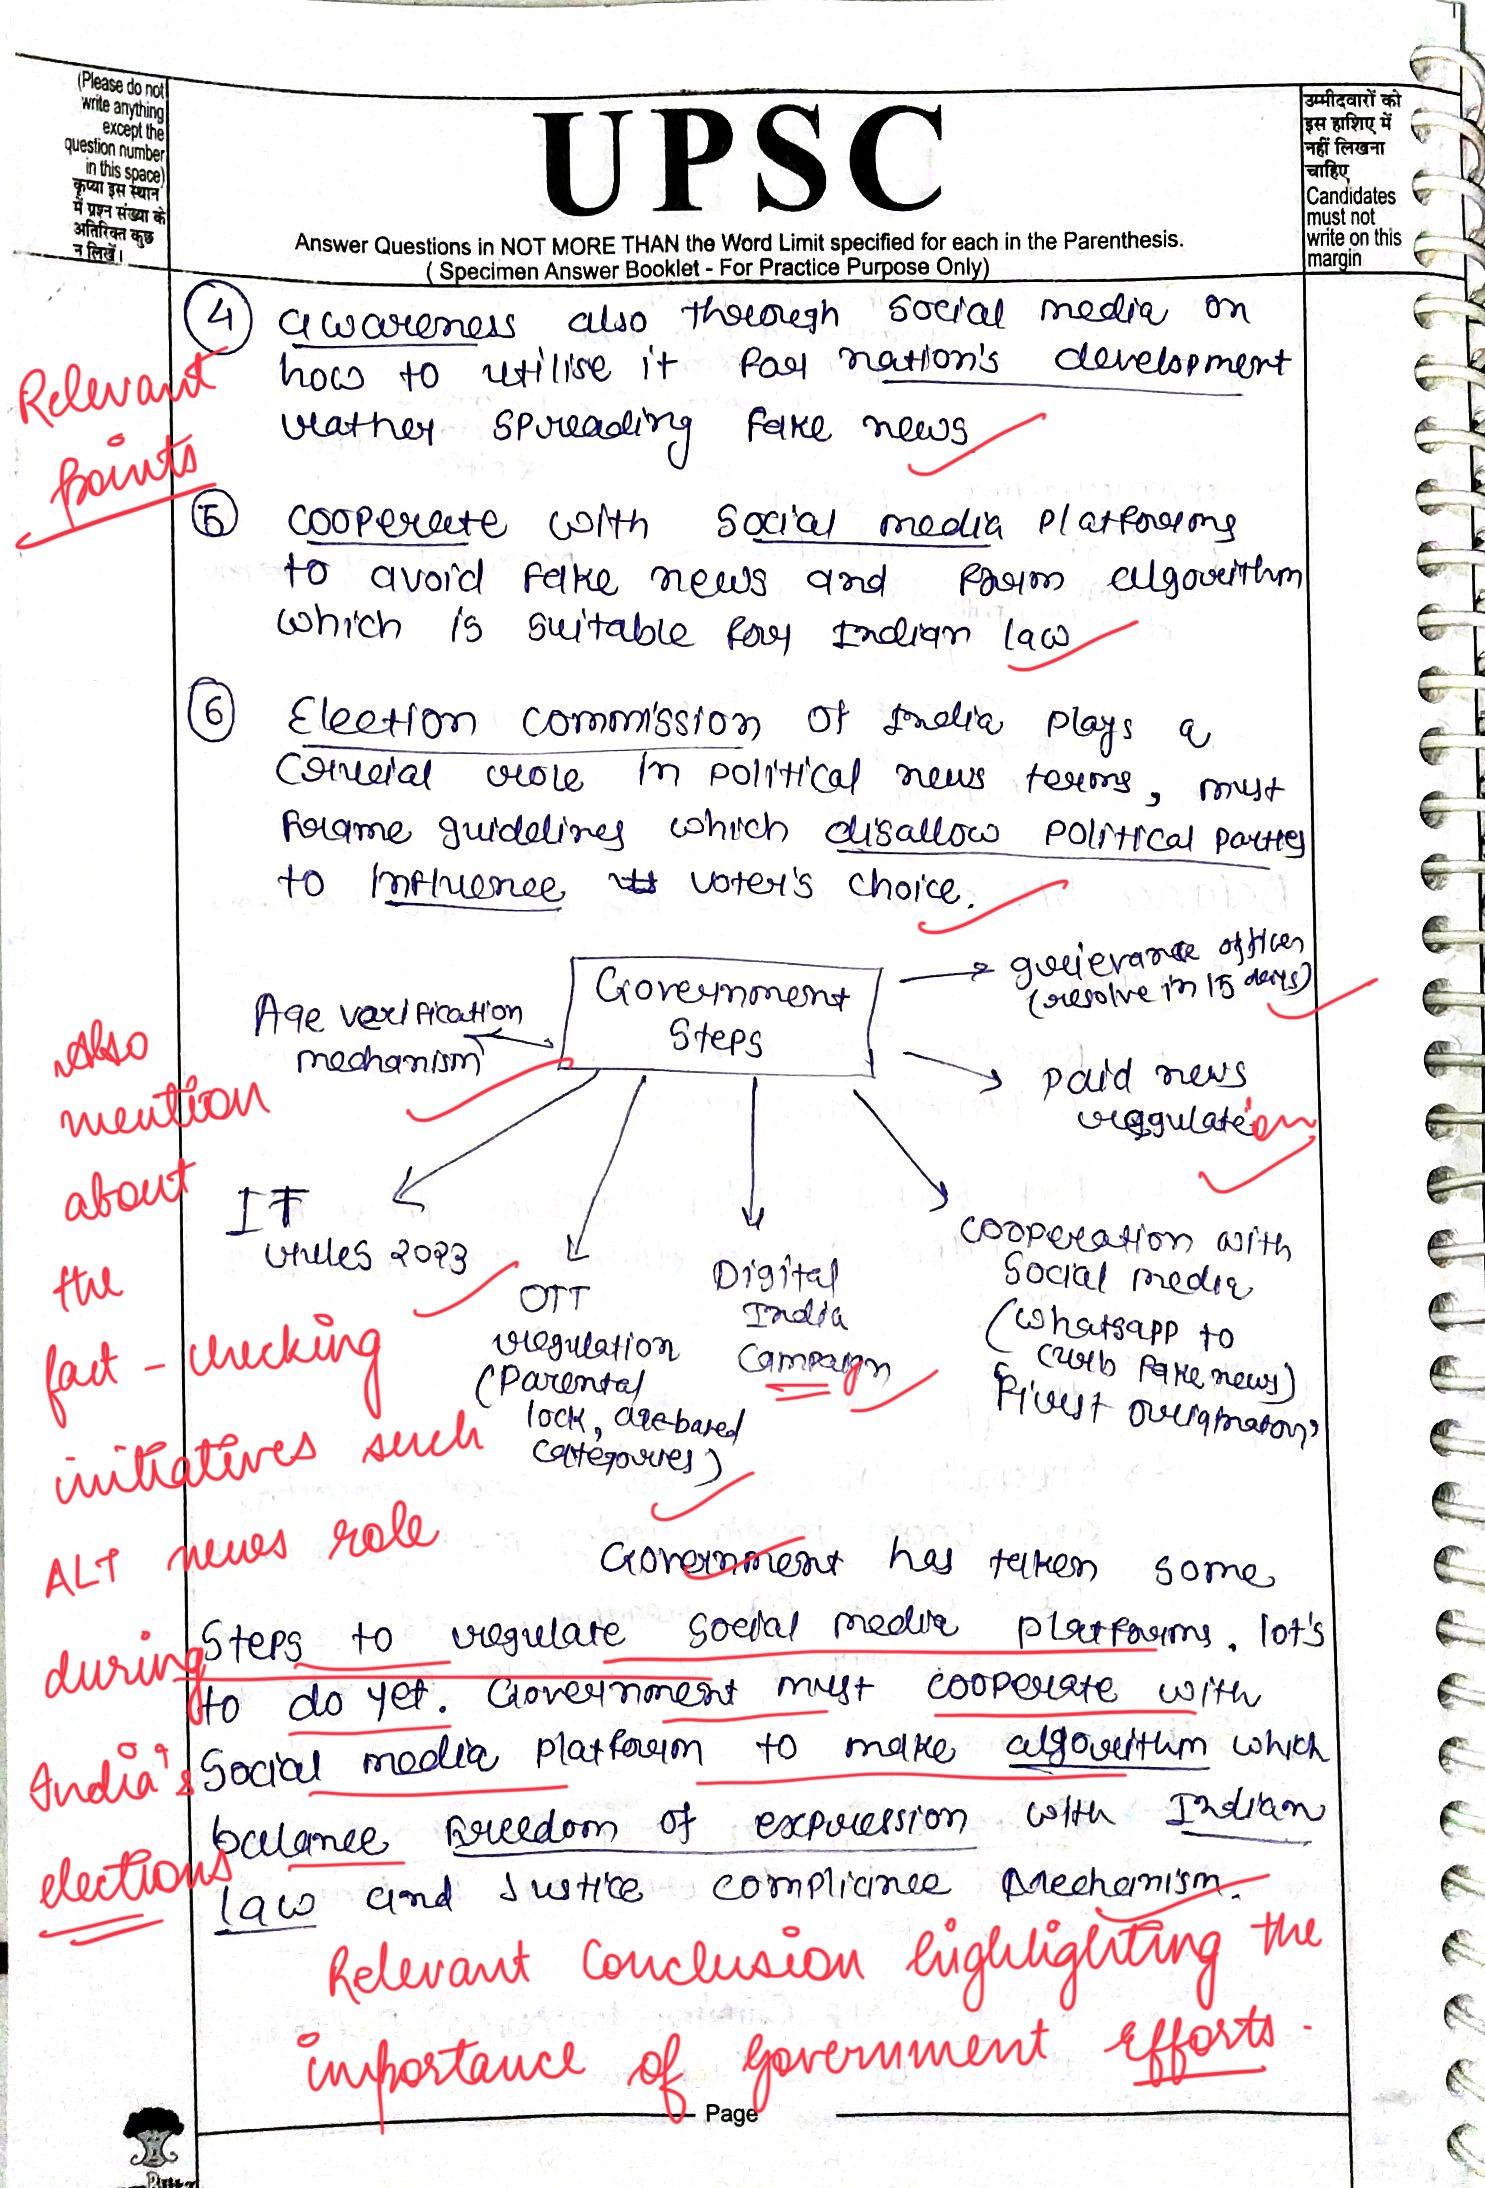 (Please do not
write anything
except the
question number
in this space)
कृप्या इस स्थान
में प्रश्न संख्या के
अतिरिक्त कुछ
न लिखें।
UPSC
Answer Questions in NOT MORE THAN the Word Limit specified for each in the Parenthesis.
( Specimen Answer Booklet - For Practice Purpose Only)
उम्मीदवारों को
इस हाशिए में
नहीं लिखना
चाहिए
Candidates
must not
write on this
margin
4 awareness also through social media on
how to utilise it for nation's development
rather spreading fake news
Relevant
points
5 cooperate with social media platforms
to avoid fake news and form algorithm
which is suitable for Indian law
6 Election commission of India plays a
crucial role in political news terms, must
frame guidelines which disallow political parties
to influence voter's choice.
Government
Steps
grievance officer
(resolve in 15 days)
Age verification
mechanism
paid news
regulation
IT
rules 2023
OTT
regulation
(Parental
lock, age-based
categories)
Digital
India
campaign
cooperation with
social media
(whatsapp to
curb fake news)
first
Also
mention
about
the
fact-checking
initiatives such
ALT news role
during
India's
elections
Government has taken some
steps to regulate social media platforms. lot's
to do yet. Government must cooperate with
social media platform to make algorithm which
balance freedom of expression with Indian
law and Justice compliance mechanism.
Relevant Conclusion highlighting the
importance of government efforts.
Page